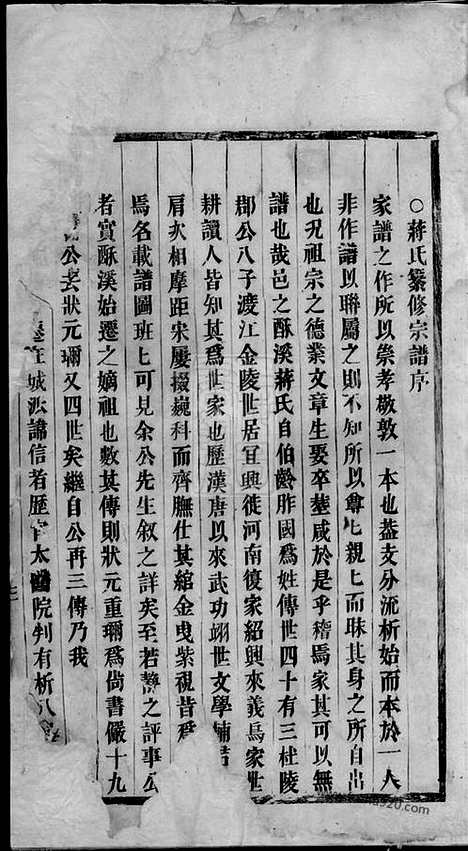 ○蔣氏纂修宗譜序
家譜之作所以崇孝敬敦一本也蓋支分流析始而本於一人
非作譜以聯屬之則不知所以尊尊親上而昧其身之所自出
也况祖宗之德業文章生娶卒塟咸於是乎稽焉家其可以無
譜也哉邑之酥溪蔣氏自伯齡胙國爲姓傳世四十有三杜陵
郡公八子渡江金陵世居宜興徙河南復家紹興來義烏家世
耕讀人皆知其爲世家也歷漢唐以來武功翊世文學輔
肩次相摩距宋屢掇巍科而齊膴仕其綰金曳紫視昔爲
焉名載譜圖班上可見余公先生叙之詳矣至若静之評事公
者實酥溪始遷之嫡祖也數其傳則狀元重珎爲尚書儼十九
公去狀元珎又四世矣繼自公再三傳乃我
城 諱信者歷官太醫院判有析八